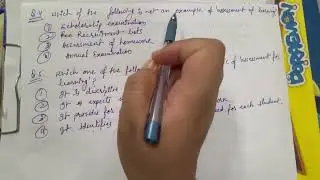 Q.4 Which of the following is not an example of assessment of learning
① Scholarship examination
② Recruitment tests
③ Assessment of homework
④ Annual Examination
Q.5 Which one of the follow of assessment for
learning?
① It is descriptive
② It is expects work
③ It provides for ed for each student
④ It identifies
DORAEMON